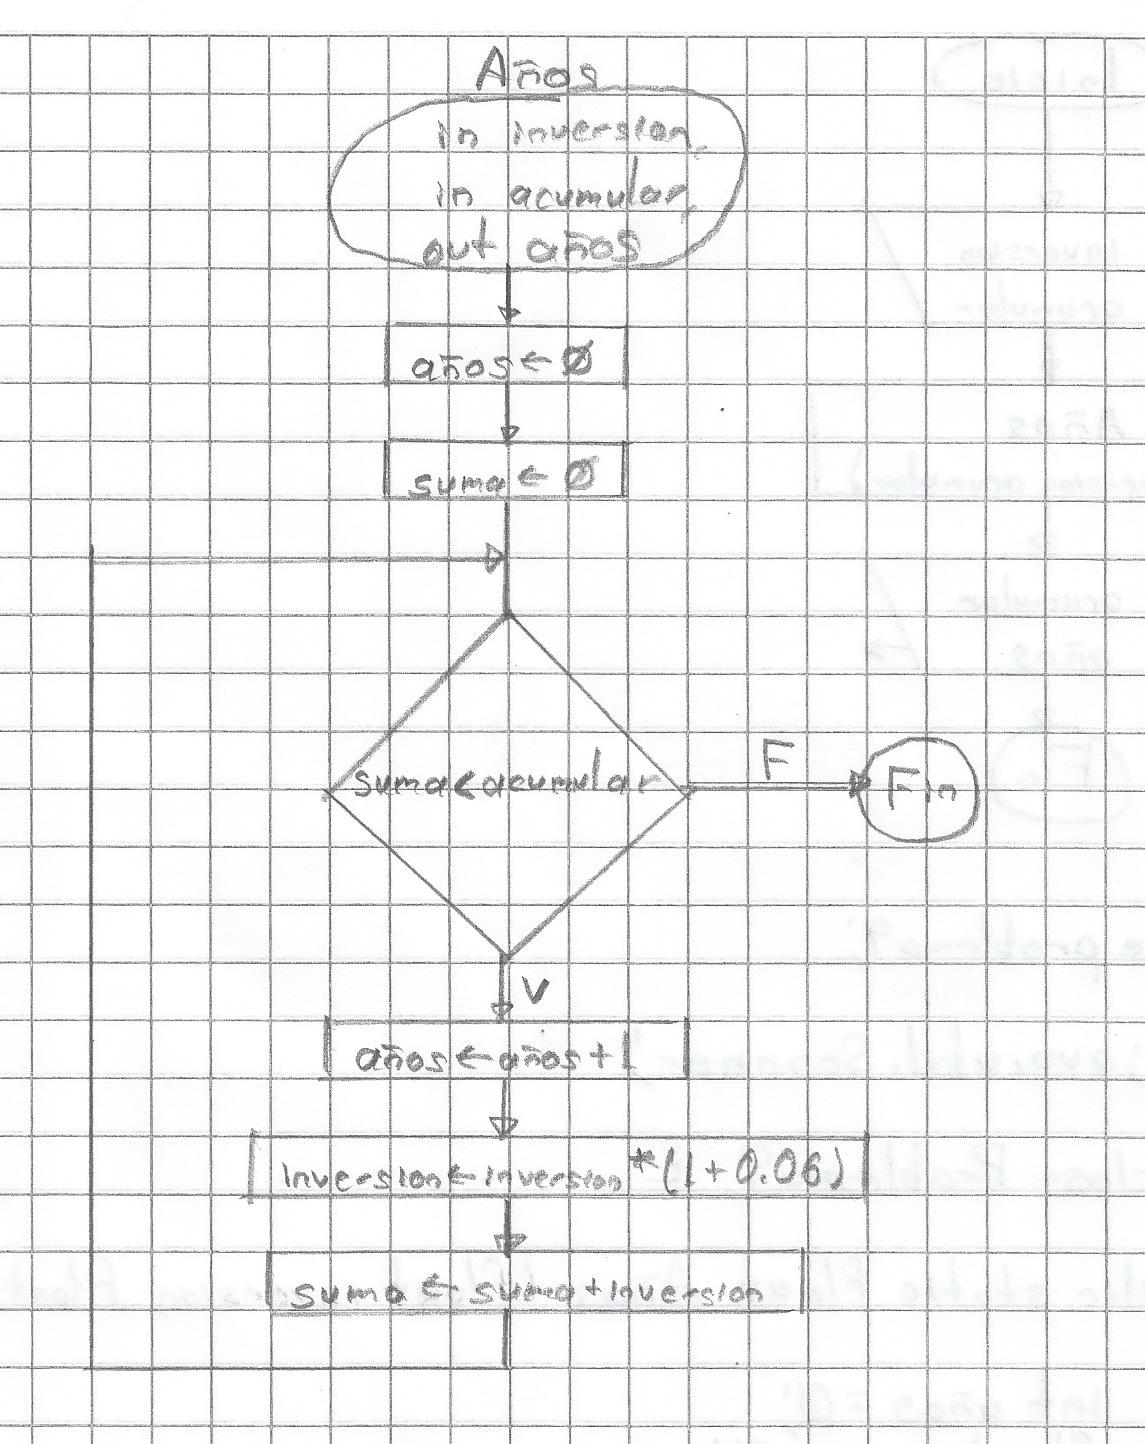 Años
in inversion,
in acumular,
out años
años ← Ø
suma ← Ø
suma < acumular
F
Fin
V
años ← años + 1
inversion ← inversion * (1 + 0.06)
suma ← suma + inversion